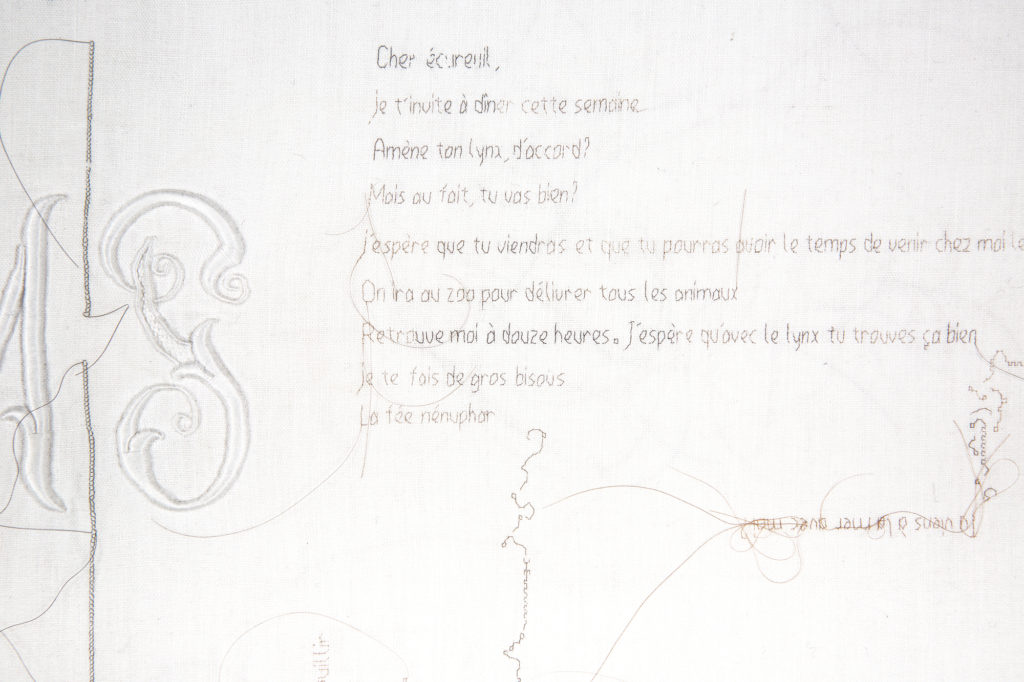 Cher écureuil,
je t'invite à dîner cette semaine
Amène ton lynx, d'accord?
Mais au fait, tu vas bien?
j'espère que tu viendras et que tu pourras avoir le temps de venir chez moi le
On ira au zoo pour délivrer tous les animaux
Retrouve moi à douze heures. J'espère qu'avec le lynx tu trouves ça bien
je te fais de gros bisous
La fée nénuphar